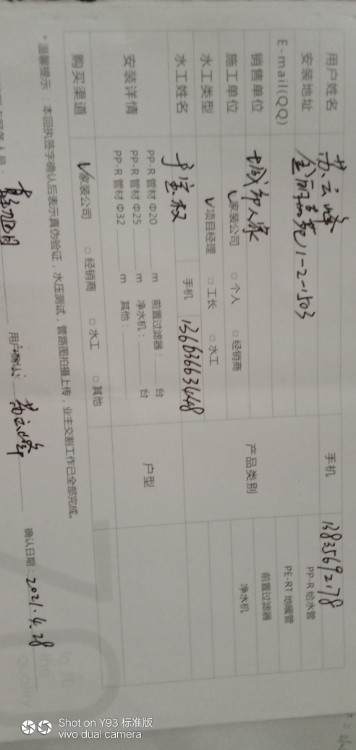 用户姓名 苏云峰 手机 13835692178
安装地址 金丽 苑1-2-1503
E-mail(QQ)
销售单位 城市人家
施工单位 ✓家装公司 □个人 □经销商
水工类型 ✓项目经理 □工长 □水工
水工姓名 宝权 手机 13603663448
产品类别
PP-R 给水管
PE-RT 地暖管
前置过滤器
净水机
安装详情
PP-R 管材 Φ20 m 前置过滤器： 台
PP-R 管材 Φ25 m 净水机： 台
PP-R 管材 Φ32 m 其他：
户型
购买渠道 ✓家装公司 □经销商 □水工 □其他
* 温馨提示：本回执签字确认后表示真伪验证，水压测试，管路图拍摄上传，业主交割工作已全部完成。
用户确认： 苏云峰 确认日期：2021.4.28
Shot on Y93 标准版
vivo dual camera